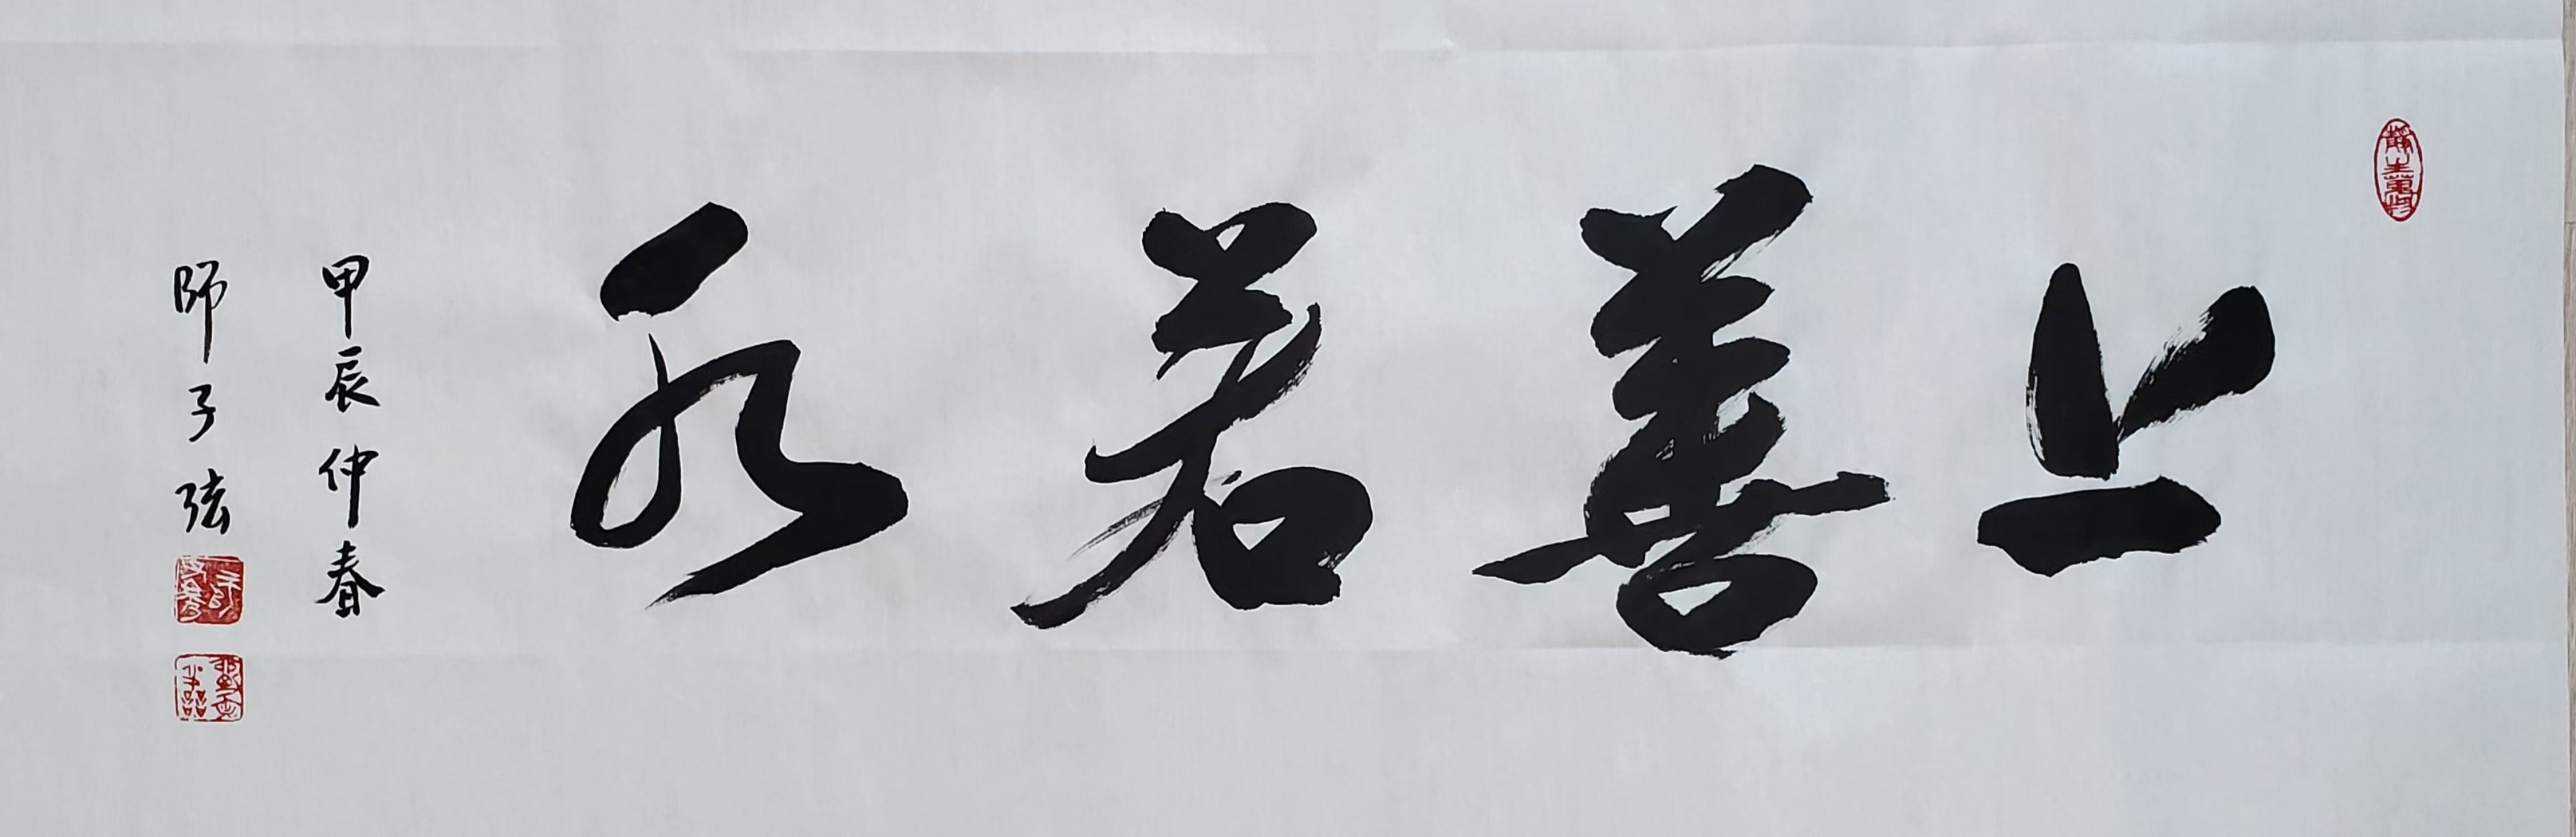 上善若水
甲辰仲春
師子弦